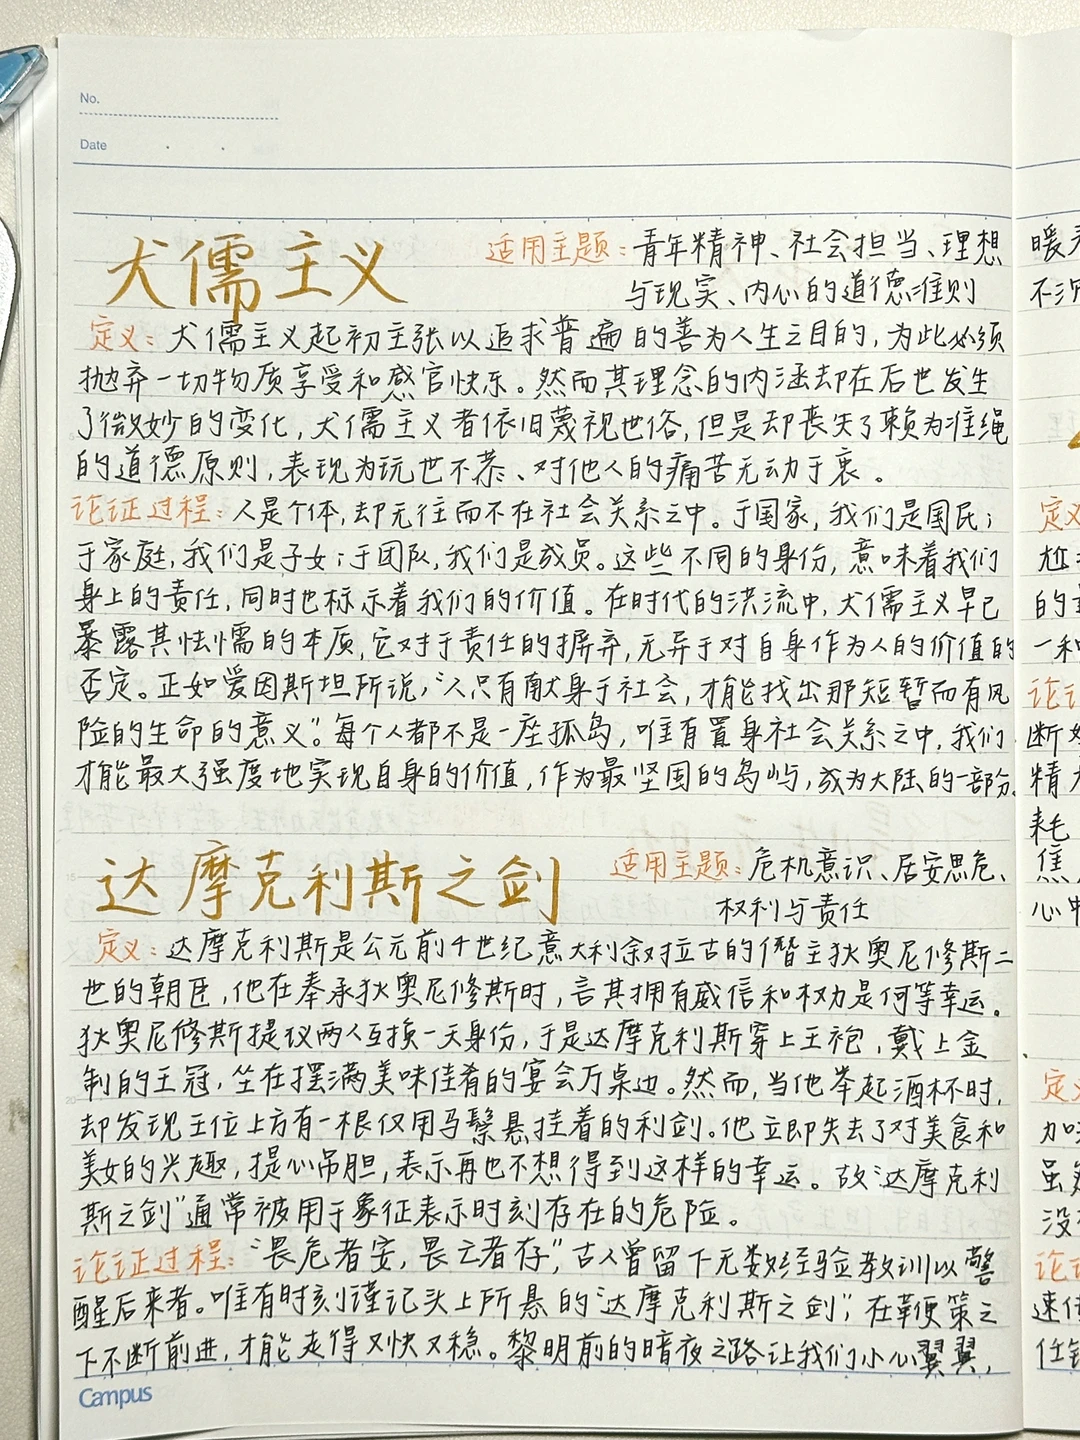 No.
Date
犬儒主义 适用主题：青年精神、社会担当、理想
与现实、内心的道德准则
定义：犬儒主义起初主张以追求普遍的善为人生之目的，为此必须
抛弃一切物质享受和感官快乐。然而其理念的内涵却在后世发生
了微妙的变化，犬儒主义者依旧蔑视世俗，但是却丧失了赖为准绳
的道德原则，表现为玩世不恭、对他人的痛苦无动于衷。
论证过程：人是个体，却无往而不在社会关系之中。于国家，我们是国民；
于家庭，我们是子女；于团队，我们是成员。这些不同的身份，意味着我们
身上的责任，同时也标示着我们的价值。在时代的洪流中，犬儒主义早已
暴露其怯懦的本质，它对于责任的摒弃，无异于对自身作为人的价值的
否定。正如爱因斯坦所说，“人只有献身于社会，才能找出那短暂而有风
险的生命的意义”。每个人都不是一座孤岛，唯有置身社会关系之中，我们
才能最大强度地实现自身的价值，作为最坚固的岛屿，成为大陆的一部分。
达摩克利斯之剑 适用主题：危机意识、居安思危、
权利与责任
定义：达摩克利斯是公元前4世纪意大利叙拉古的僭主狄奥尼修斯二
世的朝臣，他在奉承狄奥尼修斯时，言其拥有威信和权力是何等幸运。
狄奥尼修斯提议两人互换一天身份，于是达摩克利斯穿上王袍，戴上金
制的王冠，坐在摆满美味佳肴的宴会厅桌边。然而，当他举起酒杯时，
却发现王位上方有一根仅用马鬃悬挂着的利剑。他立即失去了对美食和
美女的兴趣，提心吊胆，表示再也不想得到这样的幸运。故“达摩克利
斯之剑”通常被用于象征表示时刻存在的危险。
论证过程：“畏危者安，畏亡者存”，古人曾留下无数经验教训以警
醒后来者。唯有时刻谨记头上所悬的“达摩克利斯之剑”，在鞭策之
下不断前进，才能走得又快又稳。黎明前的暗夜之路让我们小心翼翼，
Campus
暖
不沉
定义
尴
的
一种
论证
断
精
耗
焦
心中
定义
加
虽
没
论证
速
任